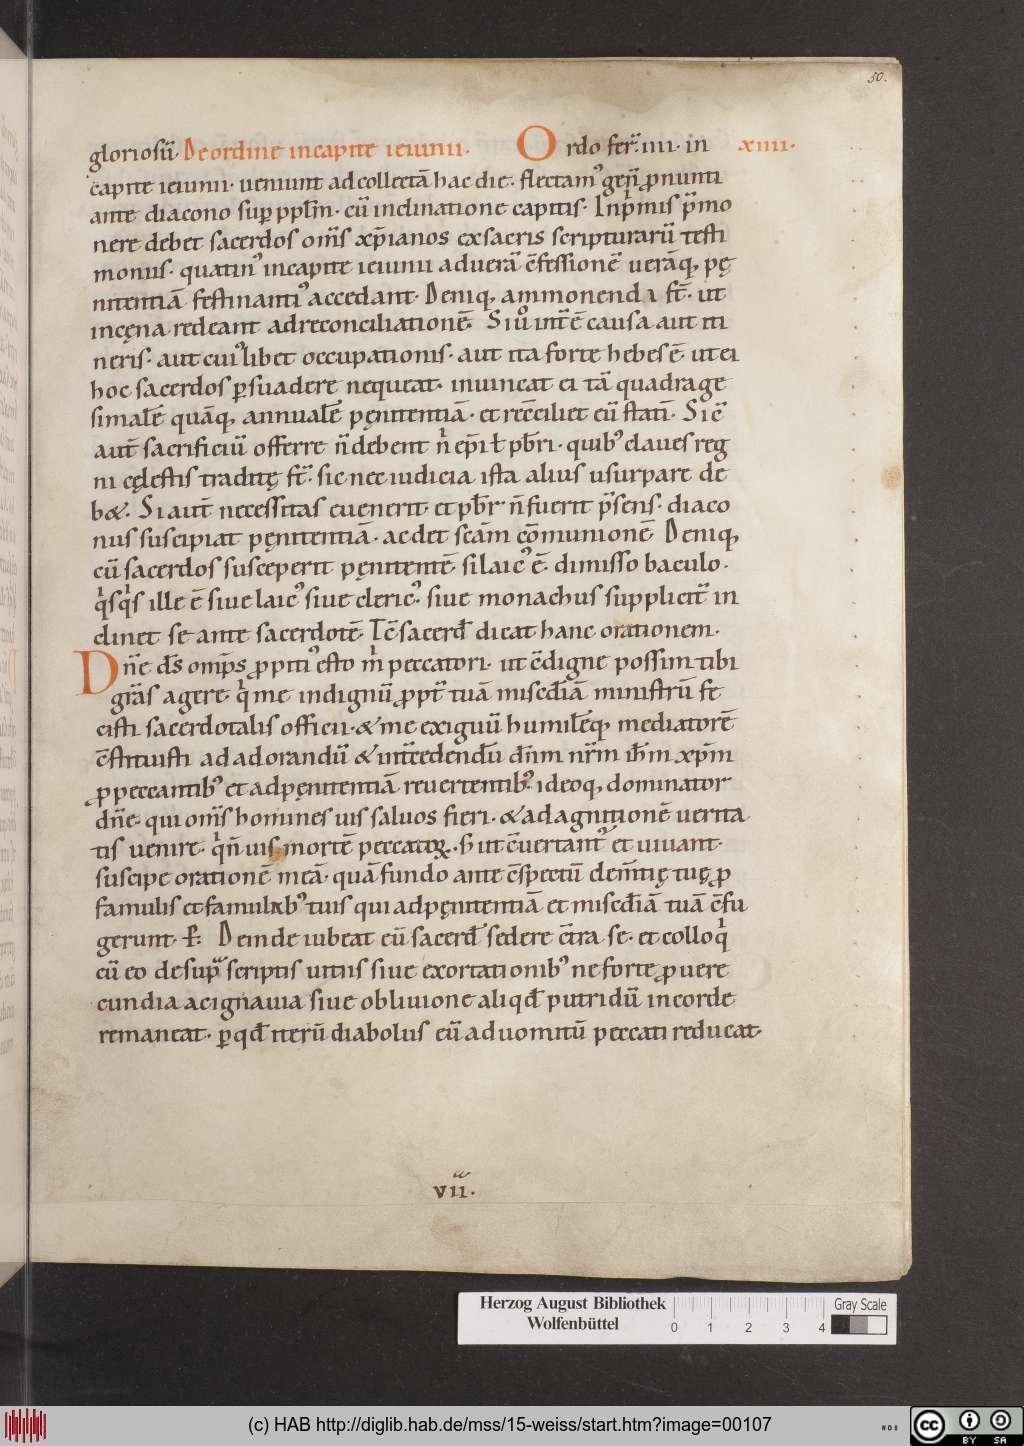 50.
gloriosū· De ordine in capite ieiunii· Ordo fer̄· iiii· in xiiii·
capite ieiunii· ueniunt ad collectā hac die· flectamꝰ geñ ꝓnunti
ante diacono suꝑ ppl̄m· cū inclinatione capitis· Inp̄mis p̄mo
nere debet sacerdos om̄s xp̄ianos ex sacris scripturarū testi
moniis· quatinꝰ in capite ieiunii ad uerā c̄fessionē uerāq, pę
nitentiā festinantiꝰ accedant· Deniq, ammonendi ft̄· ut
in cęna redeant ad reconciliationē· Si ů int̄ē causa aut iti
neris· aut cuiꝰlibet occupationis· aut ita forte hebes ē· ut ei
hoc sacerdos ꝑsuadere nequeat· iniuncat ei tā quadrage
simalē quāq, annualē pęnitentiā· et rec̄ciliet eū statī· Sic̄
aut̄ sacrificiū offerre ñ debent nͥ ep̄i ł pbr̄i· quibꝰ claues reg
ni cęlestis traditę ft̄· sic nec iudicia ista alius usurpare de
b&· Si aut̄ necessitas euenerit· et pbr̄ ñ fuerit p̄sens· diaco
nus suscipiat pęnitentiā· ac det sc̄am cōmunionē· Deniq,
cū sacerdos susceperit pęnitentē· si laicꝰ ē· dimisso baculo·
qͥsqͥs ille ē siue laicꝰ siue clericꝰ· siue monachus supplicit̄ in
clinet se ante sacerdotē· Tc̄ sacerđ dicat hanc orationem·
Dn̄e d̄s omp̄s ꝓpitiꝰ esto mͥ peccatori· ut c̄digne possim tibi
gr̄as agere· qͥ me indignū ꝓpt̄ tuā misc̄diā ministrū fe
cisti sacerdotalis officii· & me exiguū humilēq, mediatorē
c̄stituisti ad adorandū & int̄cedendū dn̄m nr̄m ih̄m xp̄m
ꝓ peccantibꝰ et ad pęnitentiā reuertentibꝰ· ideoq, dominator
dn̄e· qui om̄s homines uis saluos fieri· & ad agnitionē uerita
tis uenire· qͥ ñ uis mortē peccatoꝝ· s̄ ut c̄uertantᷣ et uiuant·
suscipe orationē meā· quā fundo ante c̄spectū clem̄tię tuę ꝓ
famulis et famulabꝰ tuis qui ad pęnitentiā et misc̄diā tuā c̄fu
gerunt· P̶· Deinde iubeat eū sacerđ sedere c̄tra se· et colloqͥ
cū eo de sup̃scriptis uitiis siue exortationibꝰ ne forte ꝓ uere
cundia ac ignauia siue obliuione aliqđ putridū in corde
remaneat· ꝑ qđ iterū diabolus eū ad uomitū peccati reducat·
VII·
Herzog August Bibliothek
Wolfenbüttel
0 1 2 3 4
Gray Scale
(c) HAB http://diglib.hab.de/mss/15-weiss/start.htm?image=00107
cc BY SA